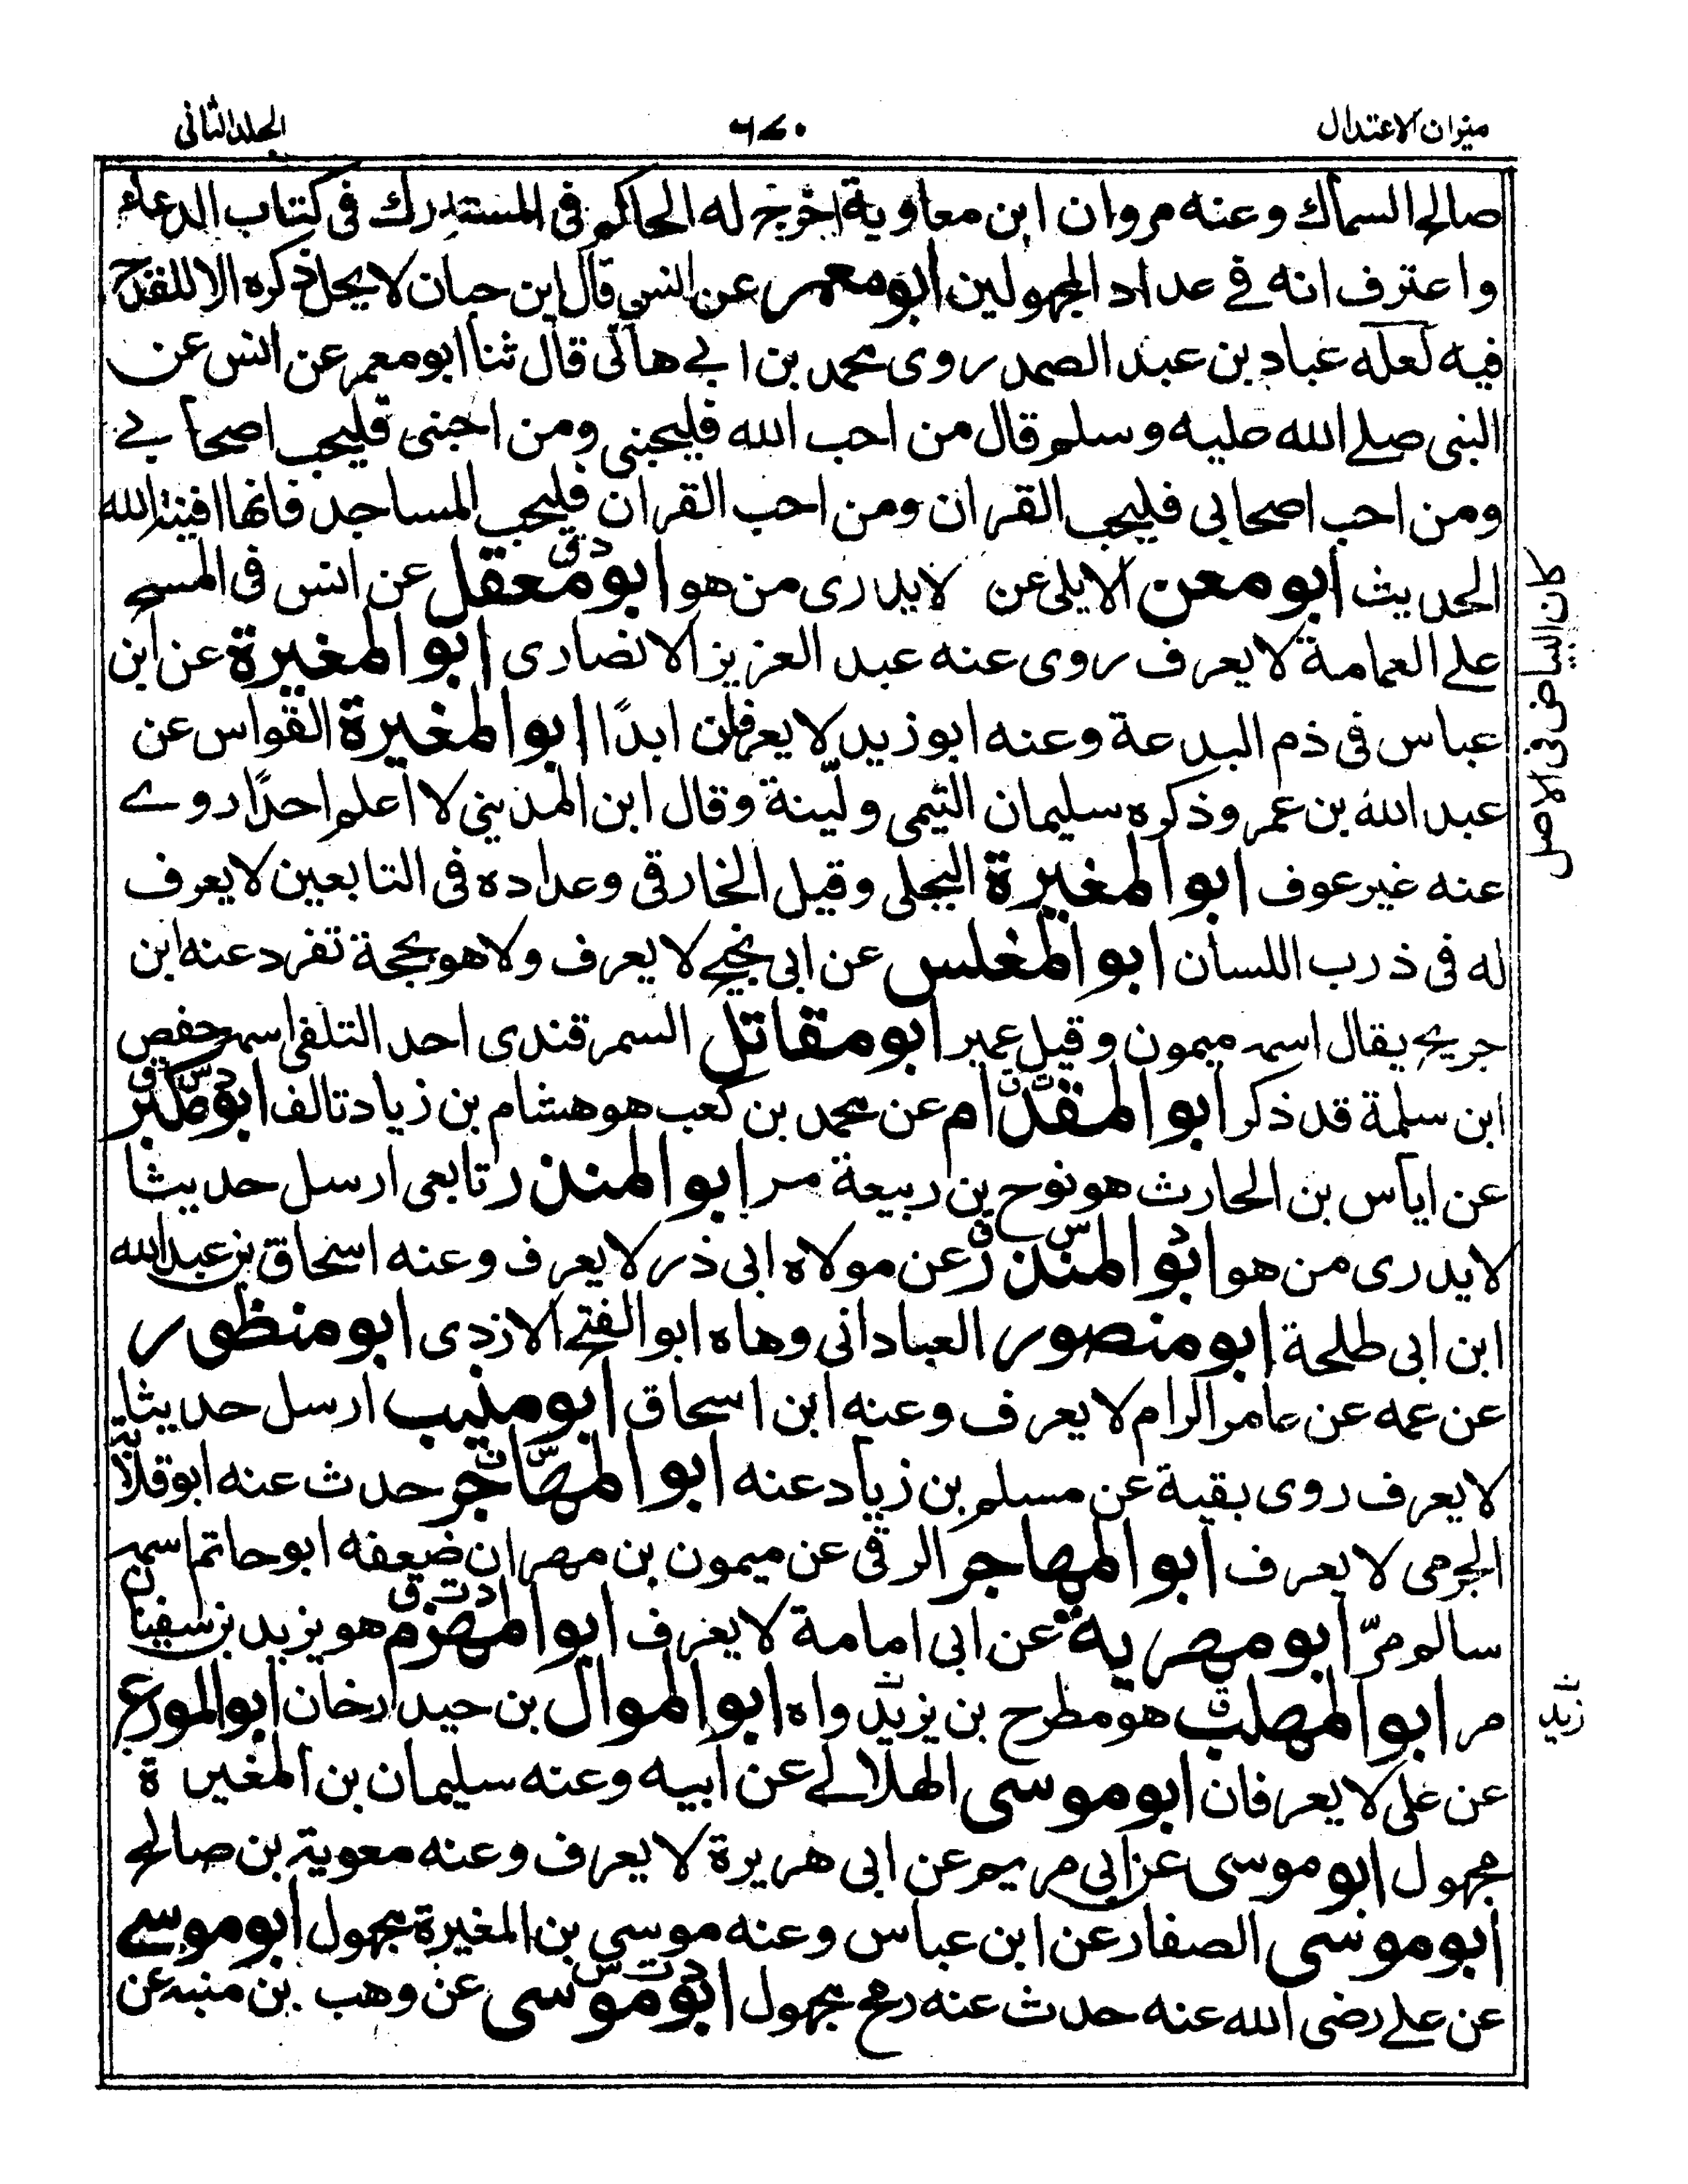 ميزان الاعتدال
٦٧٠
الجلد الثانى
صالح السماك وعنه مروان ابن معاوية اخرج له الحاكم فى المستدرك فى كتاب الدعاء
واعترف انه فے عداد المجهولين ابو معمر عن انس قال ابن حبان لا يحل ذكره الا للقدح
فيه لعله عباد بن عبد الصمد روى محمد بن ابے هانى قال ثنا ابو معمر عن انس عن
النبى صلے الله عليه وسلم قال من احب الله فليحبنى ومن احبنى فليحب اصحابے
ومن احب اصحابى فليحب القران ومن احب القران فليحب المساجد فانها افنية الله
الحديث ابو معن الايلى عن لا يدرى من هو ابو معقل د ق عن انس فى المسح
علے العمامة لا يعرف روى عنه عبد العزيز الانصارى ابو المغيرة عن ابن
عباس فى ذم البدعة وعنه ابو زيد لا يعرفان ابدًا ابو المغيرة القواس عن
عبد الله بن عمر وذكره سليمان التيمى ولينة وقال ابن المدينى لا اعلم احدًا روے
عنه غير عوف ابو المغيرة البجلى وقيل الخارقى وعداده فى التابعين لا يعرف
له فى ذرب اللسان ابو المغلس عن ابى نجيح لا يعرف ولا هو بحجة تفرد عنه ابن
جريج يقال اسمه ميمون وقيل عمير ابو مقاتل السمرقندى احد التلفى اسمه حفص
ابن سلمة قد ذكر ابو المقدّام ت ق عن محمد بن كعب هو هشام بن زياد تالف ابو مكين د س ق
عن اياس بن الحارث هو نوح بن ربيعة مر ابو المنذر تابعى ارسل حديثا
لا يدرى من هو ابو المنذر د س ق عن مولاه ابى ذر لا يعرف وعنه اسحاق بن عبد الله
ابن ابى طلحة ابو منصور العبادانى وهاه ابو الفتح الازدى ابو منظور
عن عمه عن عامر الرام لا يعرف وعنه ابن اسحاق ابو منيب ارسل حديثا
لا يعرف روى بقية عن مسلم بن زياد عنه ابو المهاجر س ق حدث عنه ابو قلابة
الجرمى لا يعرف ابو المهاجر الرقى عن ميمون بن مهران ضعفه ابو حاتم اسمه
سالم مرّ ابو مهرية عن ابى امامة لا يعرف ابو المهزم د ت ق هو يزيد بن سفيان
مر ابو المهلب ق هو مطرح بن يزيد واه ابو الموال بن حيدارخان ابو المورع
عن على لا يعرفان ابو موسى الهلالے عن ابيه وعنه سليمان بن المغيرة
مجهول ابو موسى عن ابى مريم عن ابى هريرة لا يعرف وعنه معوية بن صالح
ابو موسى الصفار عن ابن عباس وعنه موسى بن المغيرة مجهول ابو موسے
عن علے رضى الله عنه حدث عنه رمح مجهول ابو موسى د ت س عن وهب بن منبه عن
كان البياض فى الاصل
زيد